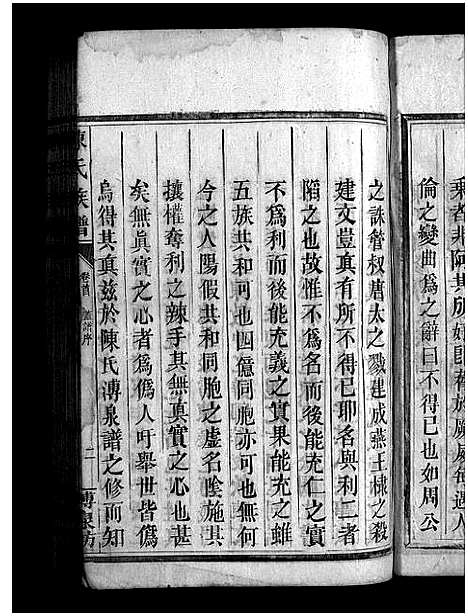 倫之變曲爲之辭曰不得已也如周公
之誅管叔唐太之戮建成燕王棣之殺
建文豈眞有所不得已耶名與利二者
陷之也故惟不爲名而後能充仁之實
不爲利而後能充義之實果能充之雖
五族共和可也四億同胞亦可也無何
今之人陽假共和同胞之虛名陰施其
攘權奪利之辣手其無眞實之心也甚
矣無眞實之心者爲僞人吁舉世皆僞
烏得其眞茲於陳氏漙泉譜之修而知
陳氏族譜
卷首
序
二
漙泉坊